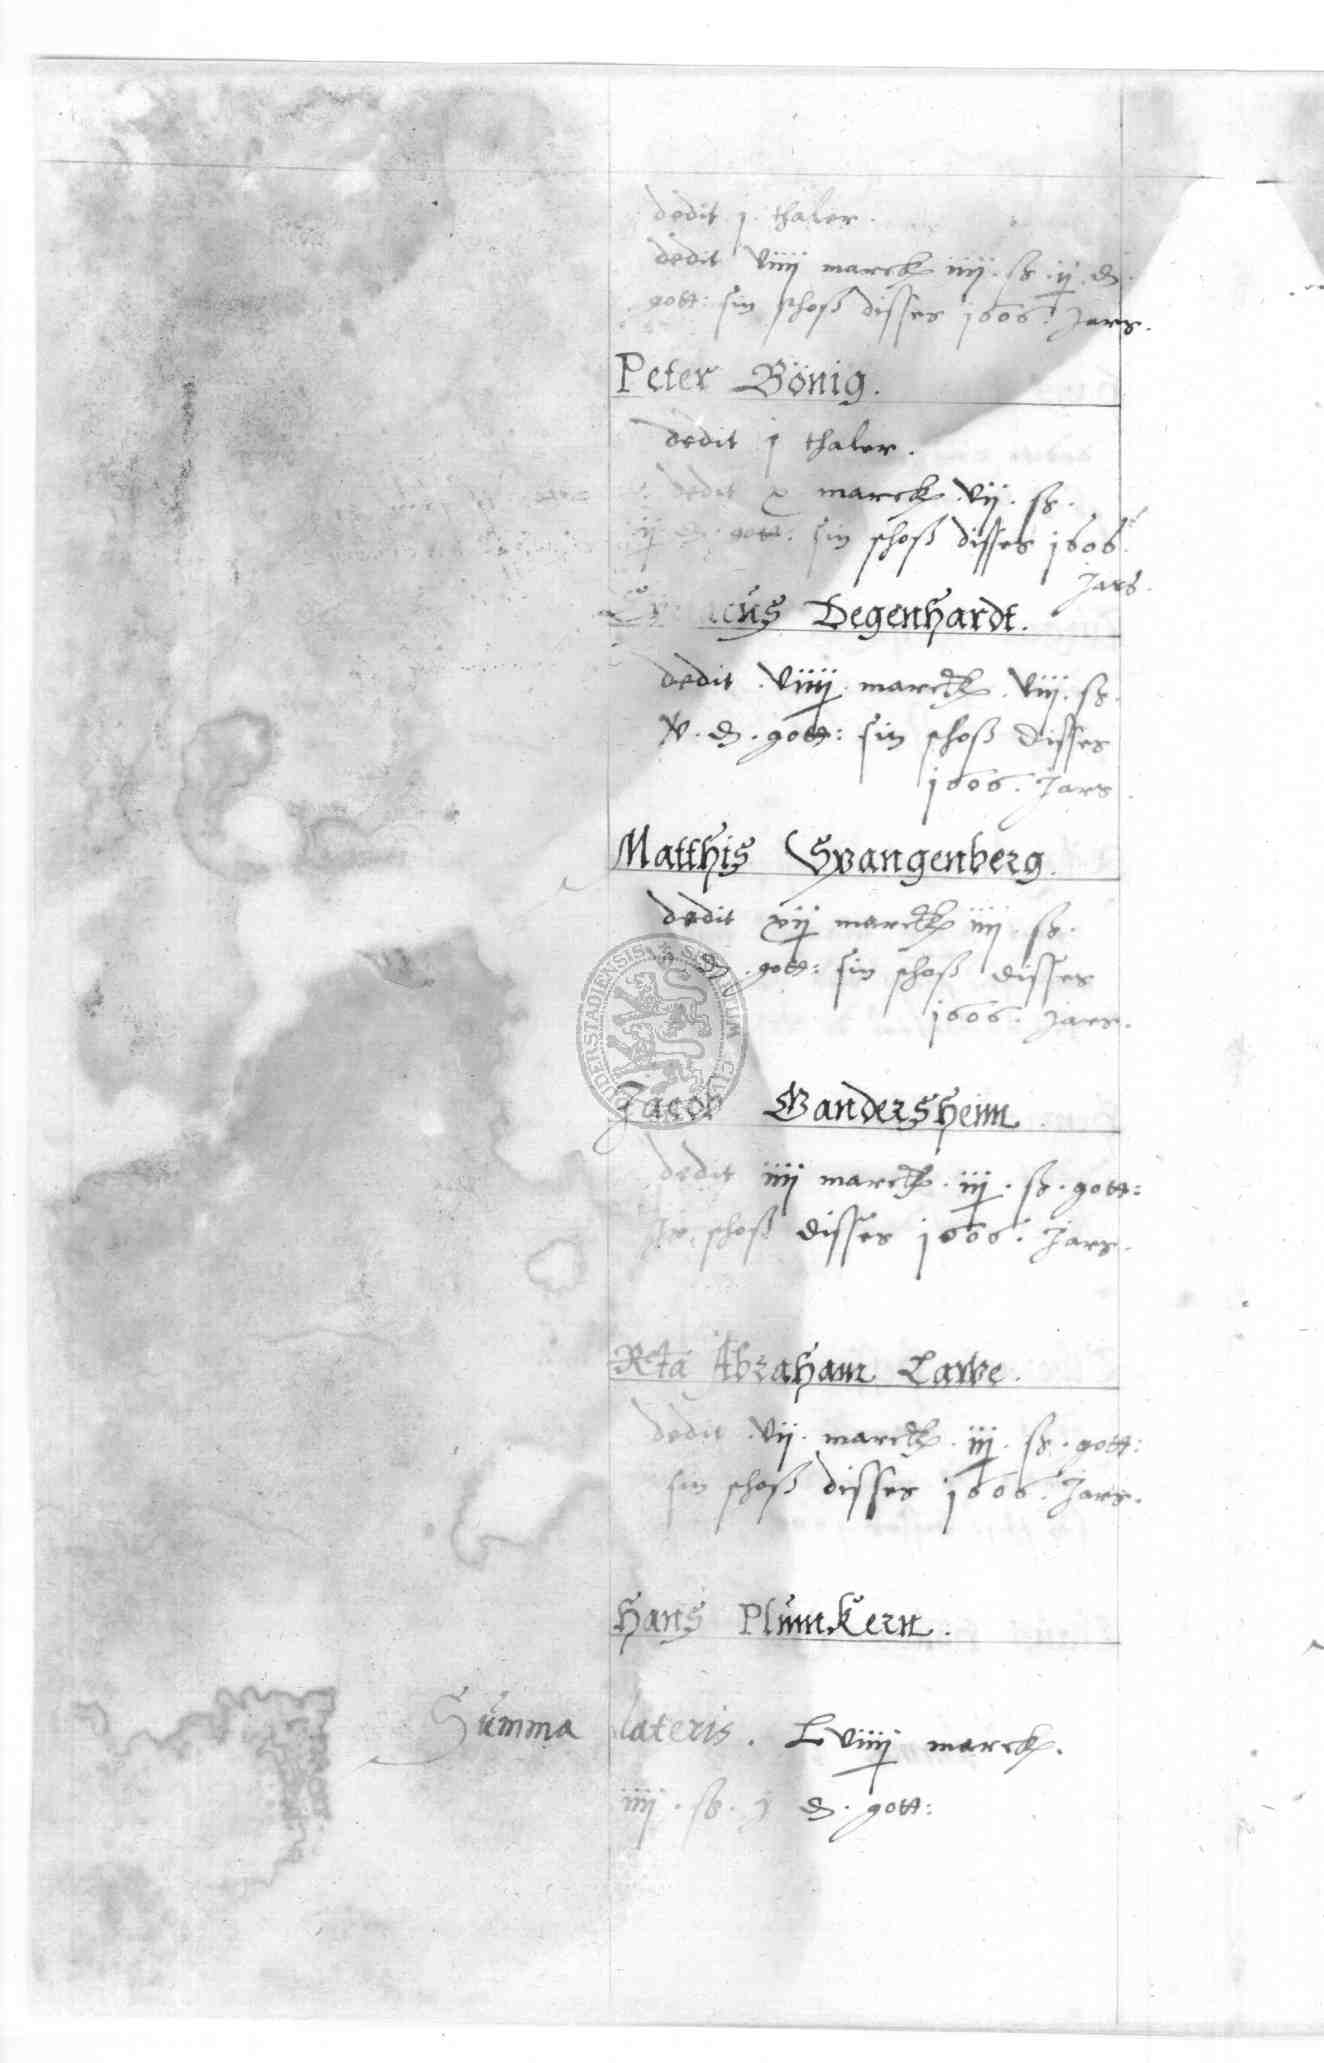 dedit j. thaler.
dedit viiij marck iiij. ß. ij. d.
gott: sin schoß disses 1606. Jars.
Peter Bönig.
dedit j thaler.
dedit x marck vij. ß.
ij d. gott: sin schoß disses 1606.
Jars.
Degenhardt.
dedit viiij marck viij. ß.
v. d. gott: sin schoß disses
1606. Jars.
Matthis Spangenberg.
dedit xij marck iiij. ß.
d. gott: sin schoß disses
1606. Jars.
SIGILLUM CIVI DUDERSTADIENSIS
Jacob Gandersheim.
dedit iiij marck iij. ß. gott:
schoß disses 1606. Jars.
Rta Abraham Lawe.
dedit vij. marck iij. ß. gott:
sin schoß disses 1606. Jars.
Hans Plümkern.
Summa lateris. Lviiij marck.
iiij. ß. j d. gott: